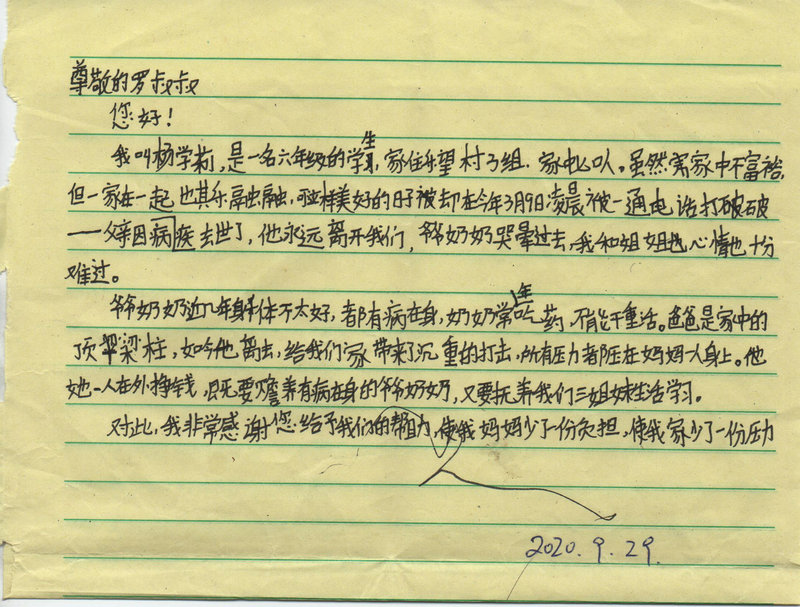 尊敬的罗叔叔
您好！
我叫杨学莉，是一名六年级的学生，家住乐望村3组．家中心口人。虽然离家中不富裕，
但一家在一起也其乐融融，可这样美好的日子被却在今年3月9日凌晨被一通电话打破破
——父亲因病疾去世了，他永远离开我们，爷奶奶哭晕过去，我和姐姐也心情也十分
难过。
爷爷奶奶近几年身体不太好，都有病在身，奶奶常年吃药，不能干重活。爸爸是家中的
顶梁柱，如今他离去，给我们家带来了沉重的打击，所有压力都压在妈妈一人身上。他
她一人在外挣钱，既要赡养有病在身的爷爷奶奶，又要抚养我们三姐妹生活学习。
对此，我非常感谢您给予我们的帮助，使我妈妈少了一份负担，使我家少了一份压力
2020.9.29.